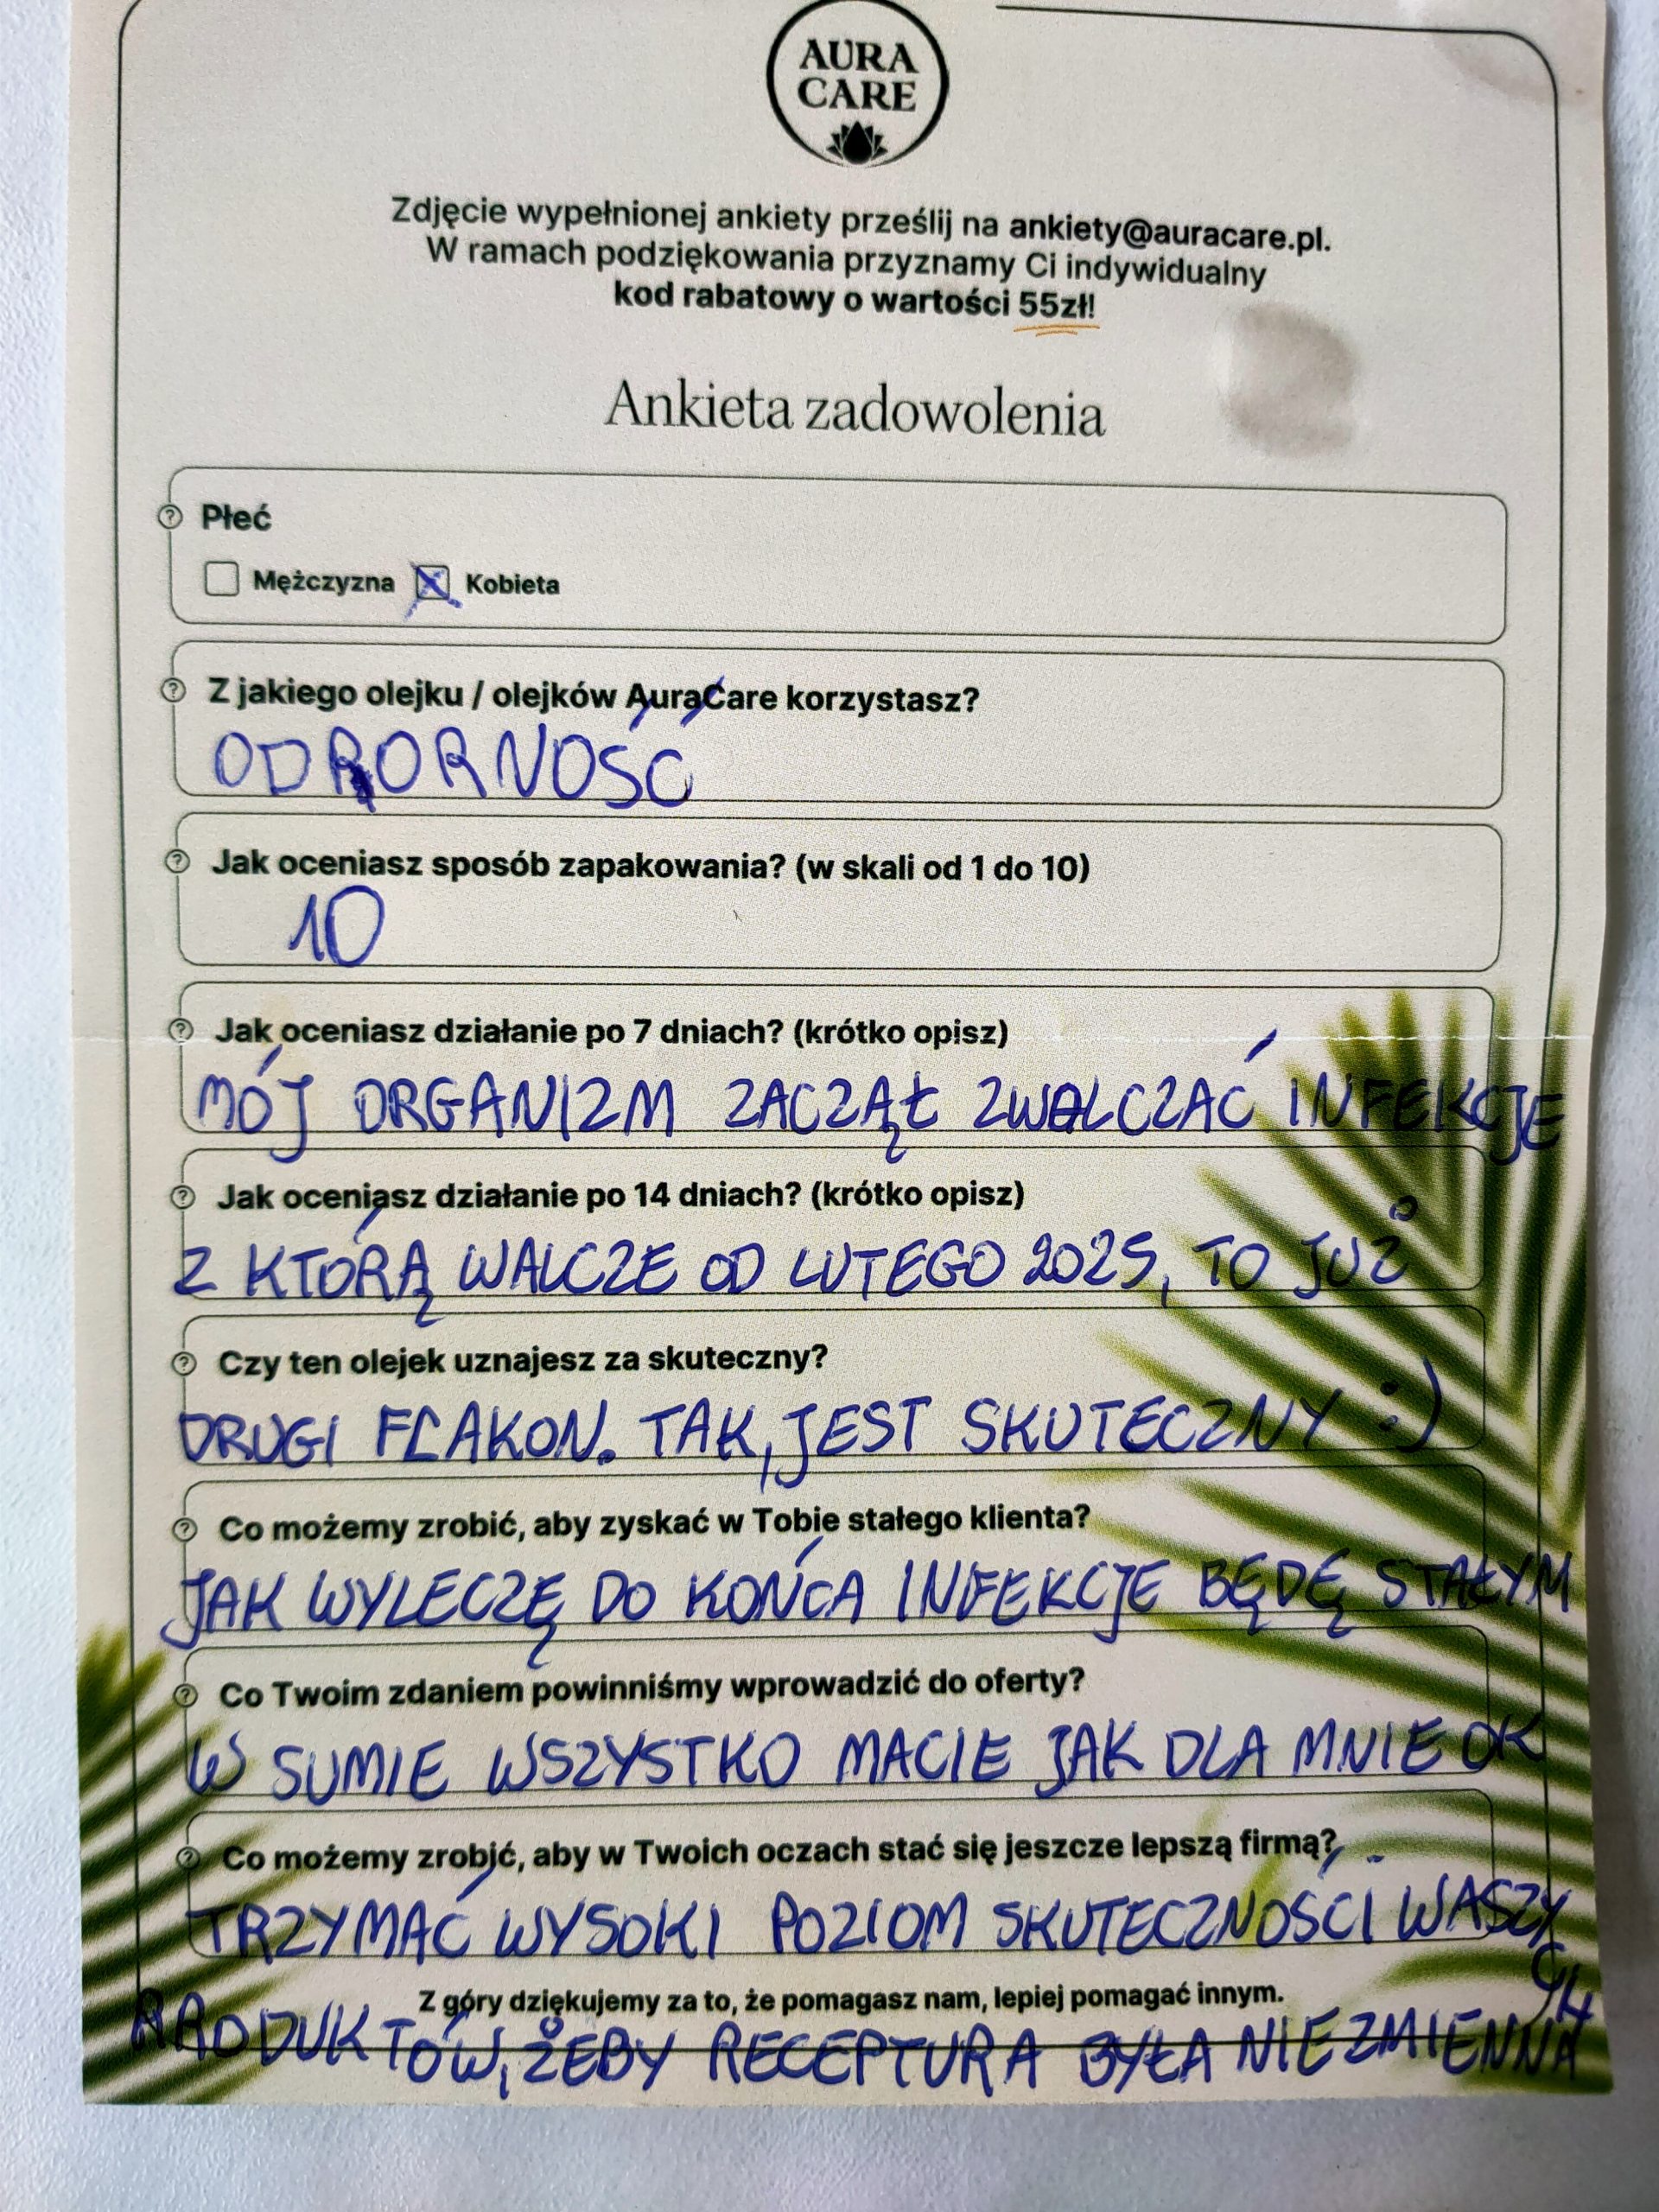 AURA
CARE
Zdjęcie wypełnionej ankiety prześlij na ankiety@auracare.pl.
W ramach podziękowania przyznamy Ci indywidualny
kod rabatowy o wartości 55zł!
Ankieta zadowolenia
Płeć
Mężczyzna Kobieta
Z jakiego olejku / olejków AuraCare korzystasz?
ODRORNOŚĆ
Jak oceniasz sposób zapakowania? (w skali od 1 do 10)
10
Jak oceniasz działanie po 7 dniach? (krótko opisz)
MÓJ ORGANIZM ZACZĄŁ ZWALCZAĆ INFEKCJE
Jak oceniasz działanie po 14 dniach? (krótko opisz)
Z KTÓRĄ WALCZE OD LUTEGO 2025, TO JUŻ
Czy ten olejek uznajesz za skuteczny?
DRUGI FLAKON. TAK, JEST SKUTECZNY :)
Co możemy zrobić, aby zyskać w Tobie stałego klienta?
JAK WYLECZĘ DO KOŃCA INFEKCJE BĘDĘ STAŁYM
Co Twoim zdaniem powinniśmy wprowadzić do oferty?
W SUMIE WSZYSTKO MACIE JAK DLA MNIE OK
Co możemy zrobić, aby w Twoich oczach stać się jeszcze lepszą firmą?
TRZYMAĆ WYSOKI POZIOM SKUTECZNOŚCI WASZYCH
Z góry dziękujemy za to, że pomagasz nam, lepiej pomagać innym.
PRODUKTÓW, ŻEBY RECEPTURA BYŁA NIEZMIENNA